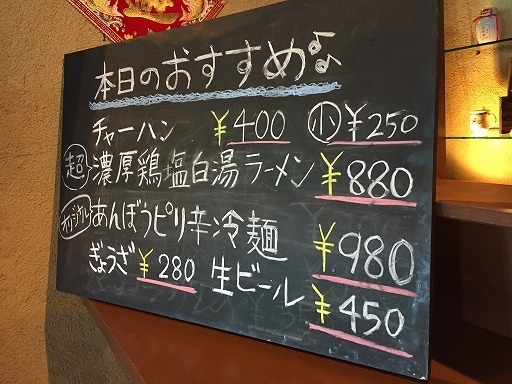 本日のおすすめ♪
チャーハン ¥400 小 ¥250
超 濃厚鶏塩白湯ラーメン ¥880
オリジナル あんぼうピリ辛冷麺 ¥980
ぎょうざ ¥280 生ビール ¥450